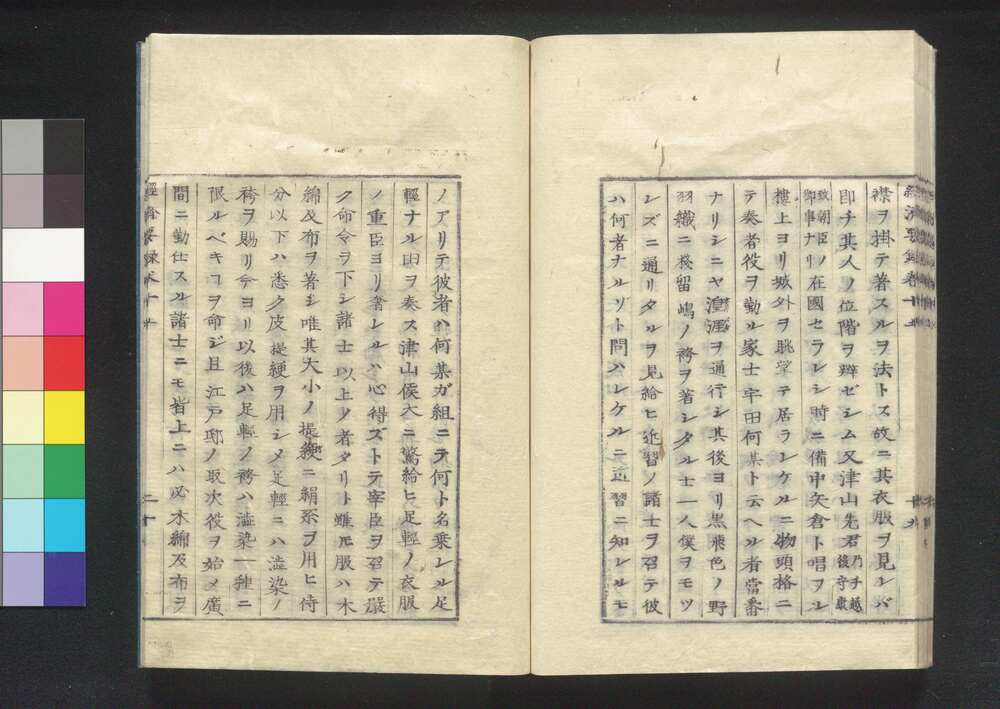 襟ヲ掛テ著スルヲ法トス故ニ其衣服ヲ見レバ
即チ其人ノ位階ヲ辨ゼシム又津山先君乃チ越後守
致朝臣ノ御事ナリ在國セラレシ時ニ備中矢倉ト唱ヲル
樓上ヨリ城外ヲ眺望テ居ラレケルニ物頭格ニ
テ奏者役ヲ勤ル家士宇田何某ト云ヘル者當番
ナリシニヤ湟涯ヲ通行シ其後ヨリ黒茶色ノ野
羽織ニ棧留嶋ノ袴ヲ著シタル士一人僕ヲモツ
レズニ通リタルヲ見給ヒ近習ノ諸士ヲ召テ彼
ハ何者ナルゾト問ハレケルニ近習ニ知レルモ
ノアリテ彼者ハ何某ガ組ニテ何ト名乗レル足
輕ナル由ヲ奏ス津山侯大ニ驚給ヒ足輕ノ衣服
ノ重臣ヨリ著シルハ心得ズトテ宰臣ヲ召テ嚴
ク命令ヲ下シ諸士以上ノ者タリト雖モ服ハ木
綿及布ヲ著シ唯其大小ノ提綆ニ絹糸ヲ用ヒ侍
分以下ハ悉ク皮提綆ヲ用シメ足輕ニハ澁染ノ
袴ヲ賜リ今ヨリ以後ハ足輕ノ袴ハ澁染一種ニ
限ルベキヿヲ命ジ且江戸邸ノ取次役ヲ始メ廣
間ニ勤仕スル諸士ニモ皆上ニハ必木綿及布ヲ
二十